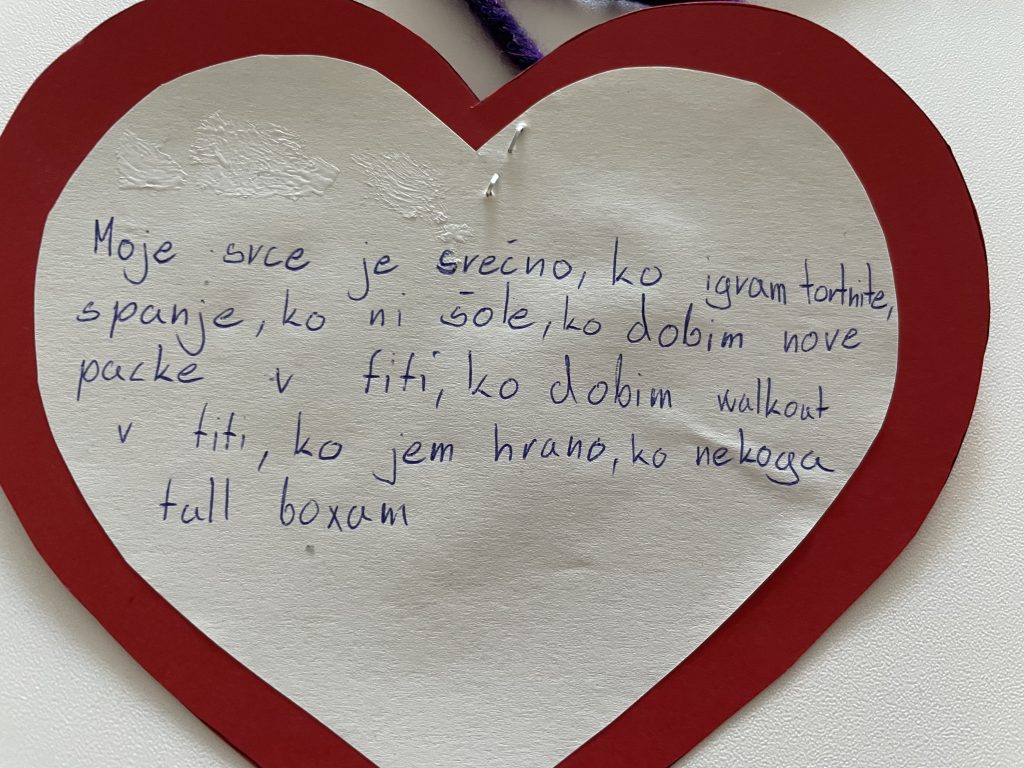 Moje srce je srečno, ko igram fortnite,
spanje, ko ni šole, ko dobim nove
packe v fifi, ko dobim walkout
v fifi, ko jem hrano, ko nekoga
full boxam